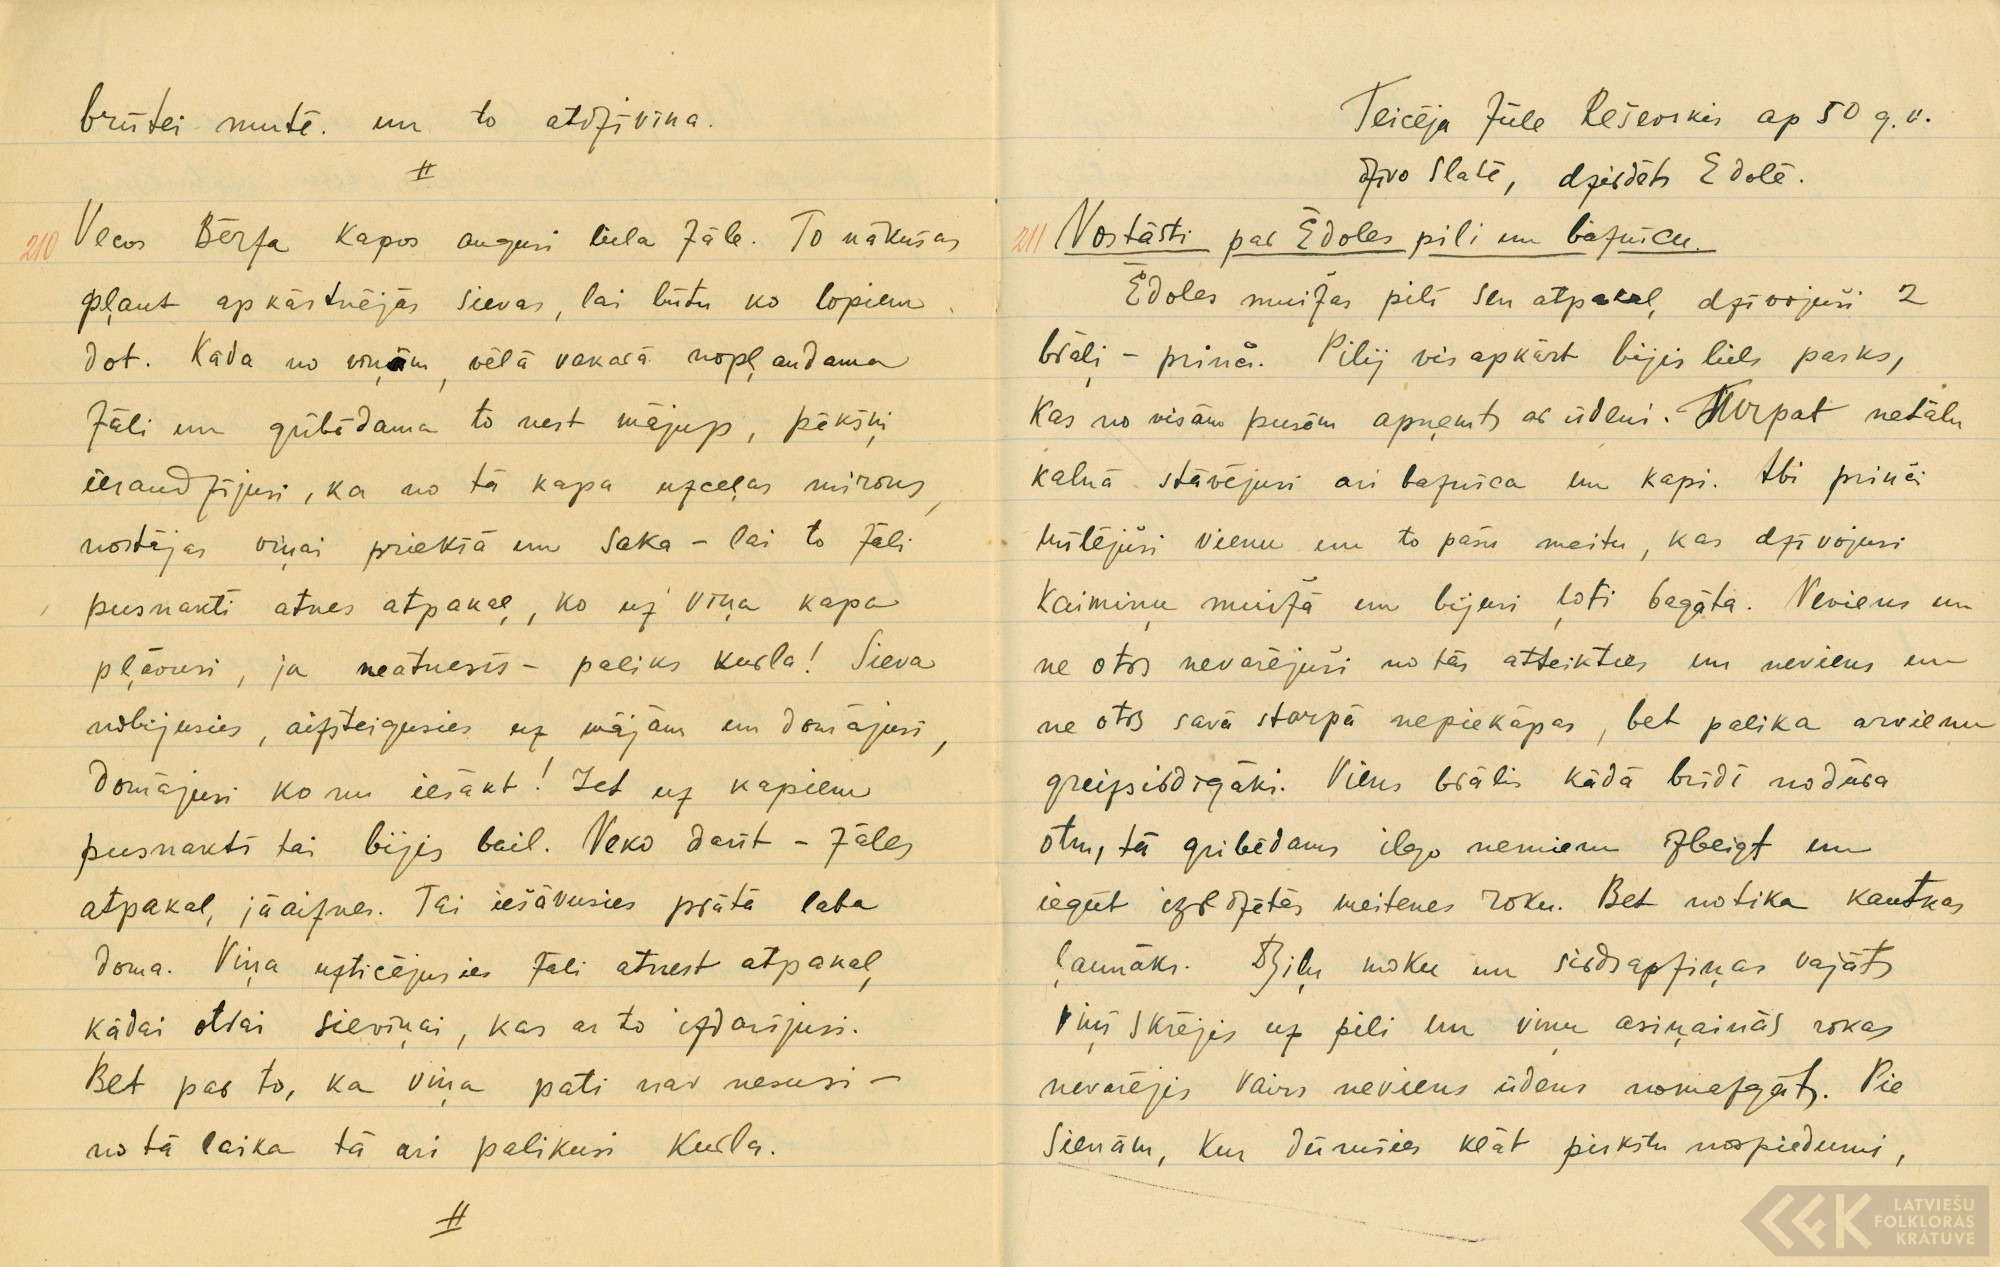 brūtei mutē. un to atdzīvina.
#
210 Vecos Bērza kapos augusi liela zāle. To nākušas
pļaut apkārtnējās sievas, lai būtu ko lopiem
dot. Kāda no viņām, vēlā vakarā nopļaudama
zāli un gribēdama to nest mājup, pēkšņi
ieraudzījusi, ka no tā kapa uzceļas mirons,
nostājas viņai priekšā un saka – lai to zāli
pusnaktī atnes atpakaļ, ko uz viņa kapa
pļāvusi, ja neatnesīs – paliks kurla! Sieva
nobijusies, aizsteigusies uz mājām un domājusi,
domājusi ko nu iesākt! Iet uz kapiem
pusnaktī tai bijis bail. Neko darīt – zāles
atpakaļ jāaiznes. Tai iešāvusies prātā laba
doma. Viņa uzticējusies zāli atnest atpakaļ
kādai otrai sieviņai, kas ar to izdarījusi.
Bet par to, ka viņa pati nav nesusi –
no tā laika tā ari palikusi kurla.
#
Teicēja Jūle ap 50 g.v.
dzīvo Slatē, dzirdēts Ēdolē.
211 Nostāsti par Ēdoles pili un baznīcu.
Ēdoles muižas pilī sen atpakaļ dzīvojuši 2
brāļi – prinči. Pilij visapkārt bijis liels parks,
kas no visām pusēm apņemts ar ūdeni. Turpat netālu
kalnā stāvējusi ari baznīca un kapi. Abi prinči
mīlējuši vienu un to pašu meitu, kas dzīvojusi
kaimiņu muižā un bijusi ļoti bagāta. Neviens un
ne otrs nevarējuši no tās atteikties un neviens un
ne otrs savā starpā nepiekāpās, bet palika arvienu
greizsirdīgāki. Viens brālis kādā brīdī nodūra
otru, tā gribēdams ilgo nemieru izbeigt un
iegūt izredzētās meitenes roku. Bet notika kautkas
ļaunāks. Dziļu moku un sirdsapziņas vajāts
viņš skrējis uz pili un viņu asiņainās rokas
nevarējis vairs neviens ūdens nomazgāt. Pie
sienām, kur dūrušies klāt pirkstu nospiedumi,
LATVIEŠU
FOLKLORAS
KRĀTUVE